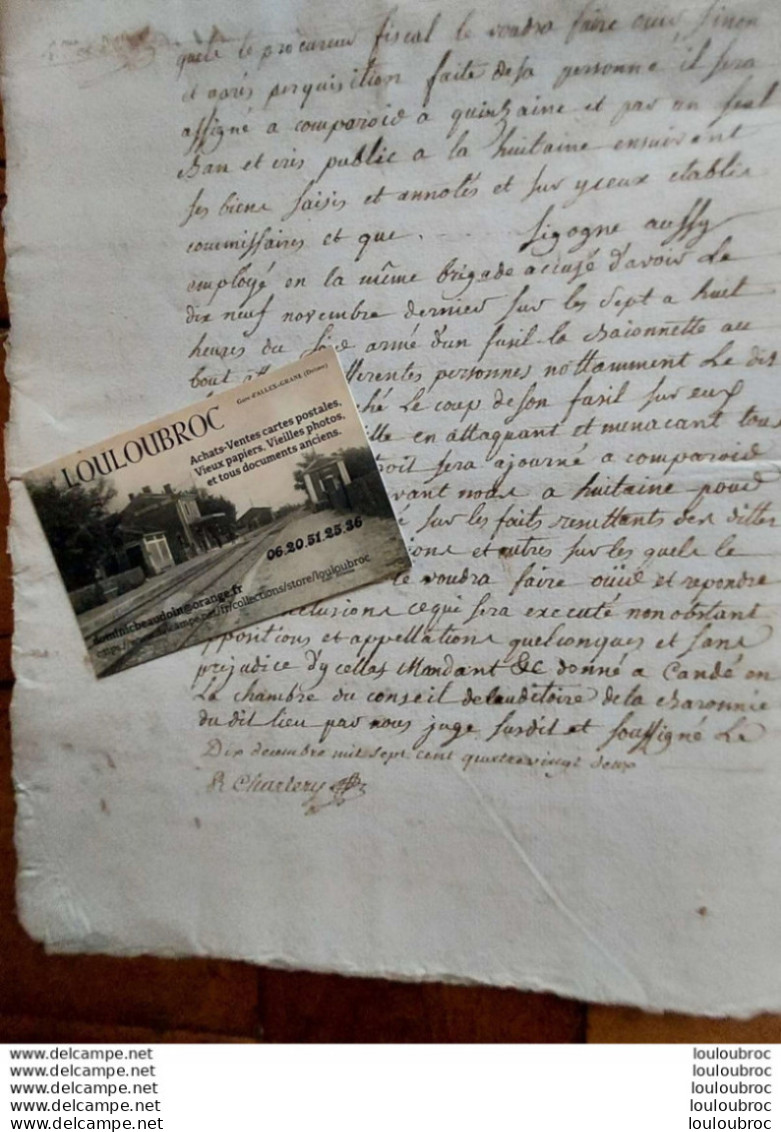 quels le procureur fiscal le voudra faire ouir, sinon
et après perquisition faite desa personne il sera
assigné a comparoid a quinzaine et par un seul
Ban et cris public a la huitaine ensuivant
ses biens saisis et annotés et sur yceux etablis
commissaires et que Sigogne aussy
employé en la même brigade accusé d'avoir Le
dix neuf novembre dernier sur les Sept a huit
heures du Soir armé d'un fusil la Baionnette au
bout differentes personnes nottamment Le dit
ché Le coup de son fusil sur eux
en attaquant et menacant tous
sera ajourné a comparoid
vant nous a huitaine pour
sur les faits resultants des dittes
ions et autres sur les quels le
le voudra faire oüid et repondre
clusions ce qui sera executé non obstant
oppositions et appellations quelconques et sans
prejudice d'ycelles Mandant &c donné a Candé en
La chambre du conseil de lauditoire de la Baronnie
du dit lieu par nous juge susdit et soussigné Le
Dix decembre mil sept cent quatrevingt deux
R Charlery
Gare d'ALLEX-GRANE (Drôme)
LOULOUBROC
Achats-Ventes cartes postales,
Vieux papiers, Vieilles photos,
et tous documents anciens.
06.20.51.25.36
dominicbeaudoin@orange.fr
https://www.delcampe.net/fr/collections/store/louloubroc
www.delcampe.net louloubroc
www.delcampe.net louloubroc
www.delcampe.net louloubroc
www.delcampe.net louloubroc
www.delcampe.net louloubroc